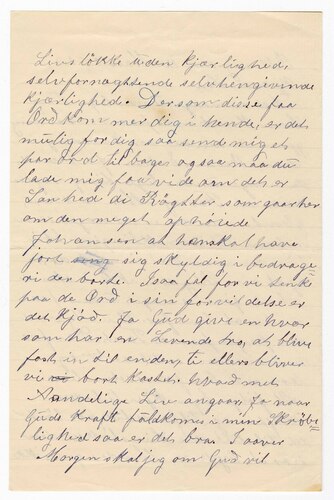 Livs lökke uden kjærlighed,
selvfornægtende selvhengivende
Kjærlighed. Dersom disse faa
Ord kommer dig i hende, er det
mulig for dig saa send mig et
par ord til bage, ogsaa maa du
lade mig faa vide om det er
Sanhed di Rögter som gaar her
om den meget ophöiede
Johansen at han skal have
gort sig skyldig i bedrage
ri der borte. Isaafal for vi tenke
paa de Ord i sin forvildelse er
det Kjöd. Ja Gud give en hver
som har en Levende Tro, at blive
fast in til enden, ti ellers bliver
vi bort kastet. hvad mit
Aandelige Liv angaar, Ja naar
Guds Kraft fuldkomes i min Skröbe
lighed saa er det bra. I aaver
Morgen skal jeg om Gud vil